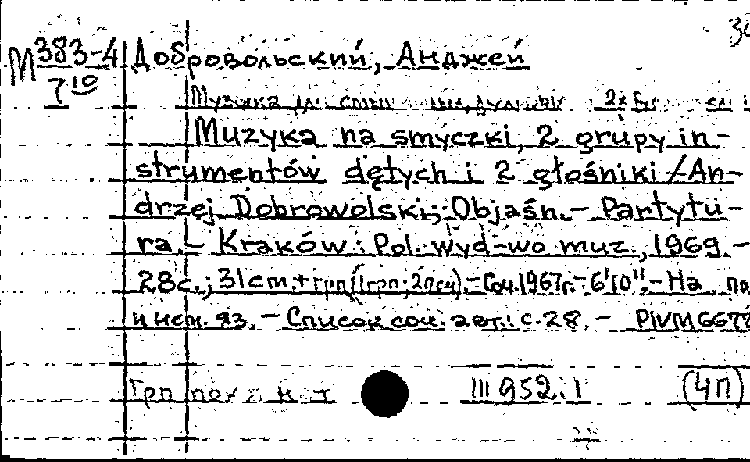 М 383-4 Добровольский, Анджей
7 10
Музыка
Muzyka na smyczki, 2 grupy in-
strumentów dętych i 2 głośniki / An-
drzej Dobrowolski; Objaśn. - Partytu-
ra. - Kraków: Pol. wyd-wo muz., 1969. -
28 с.; 31 cm. + грп (1 грп; 2 - Соч. 1967 г. - 6'10". - На
и нем. яз. - Список соч. авт.: с. 28. - PWM 6678
Грп III 952.1 (4П)